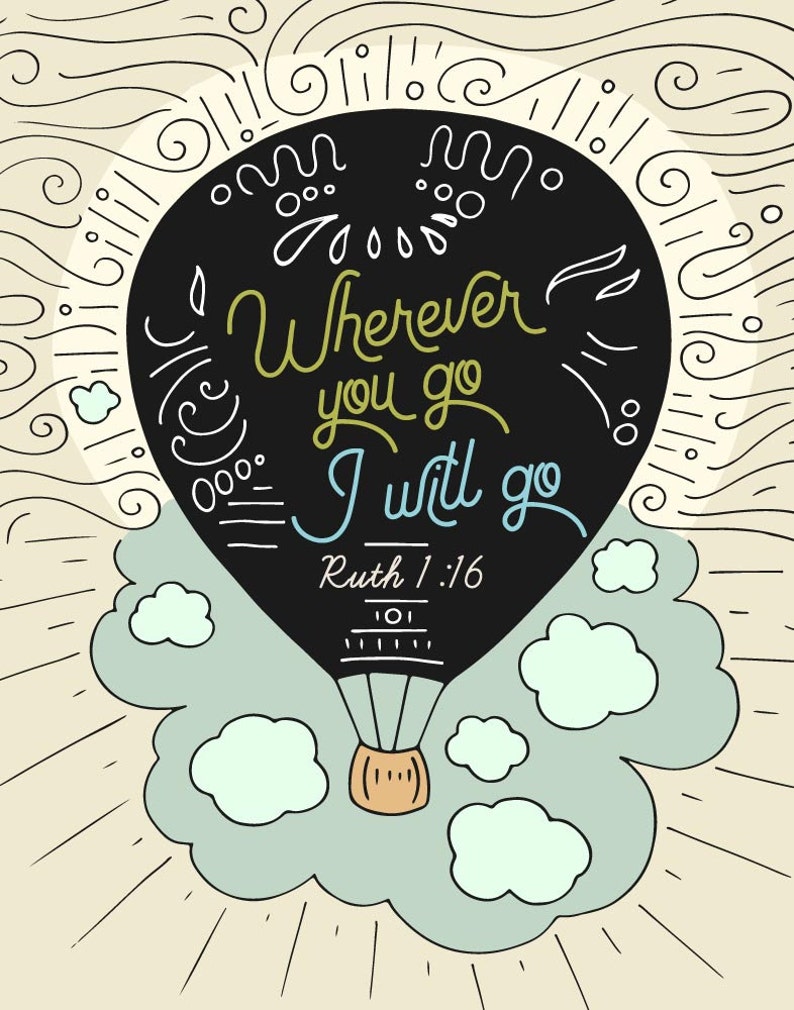 Wherever
you go
I will go
Ruth 1:16